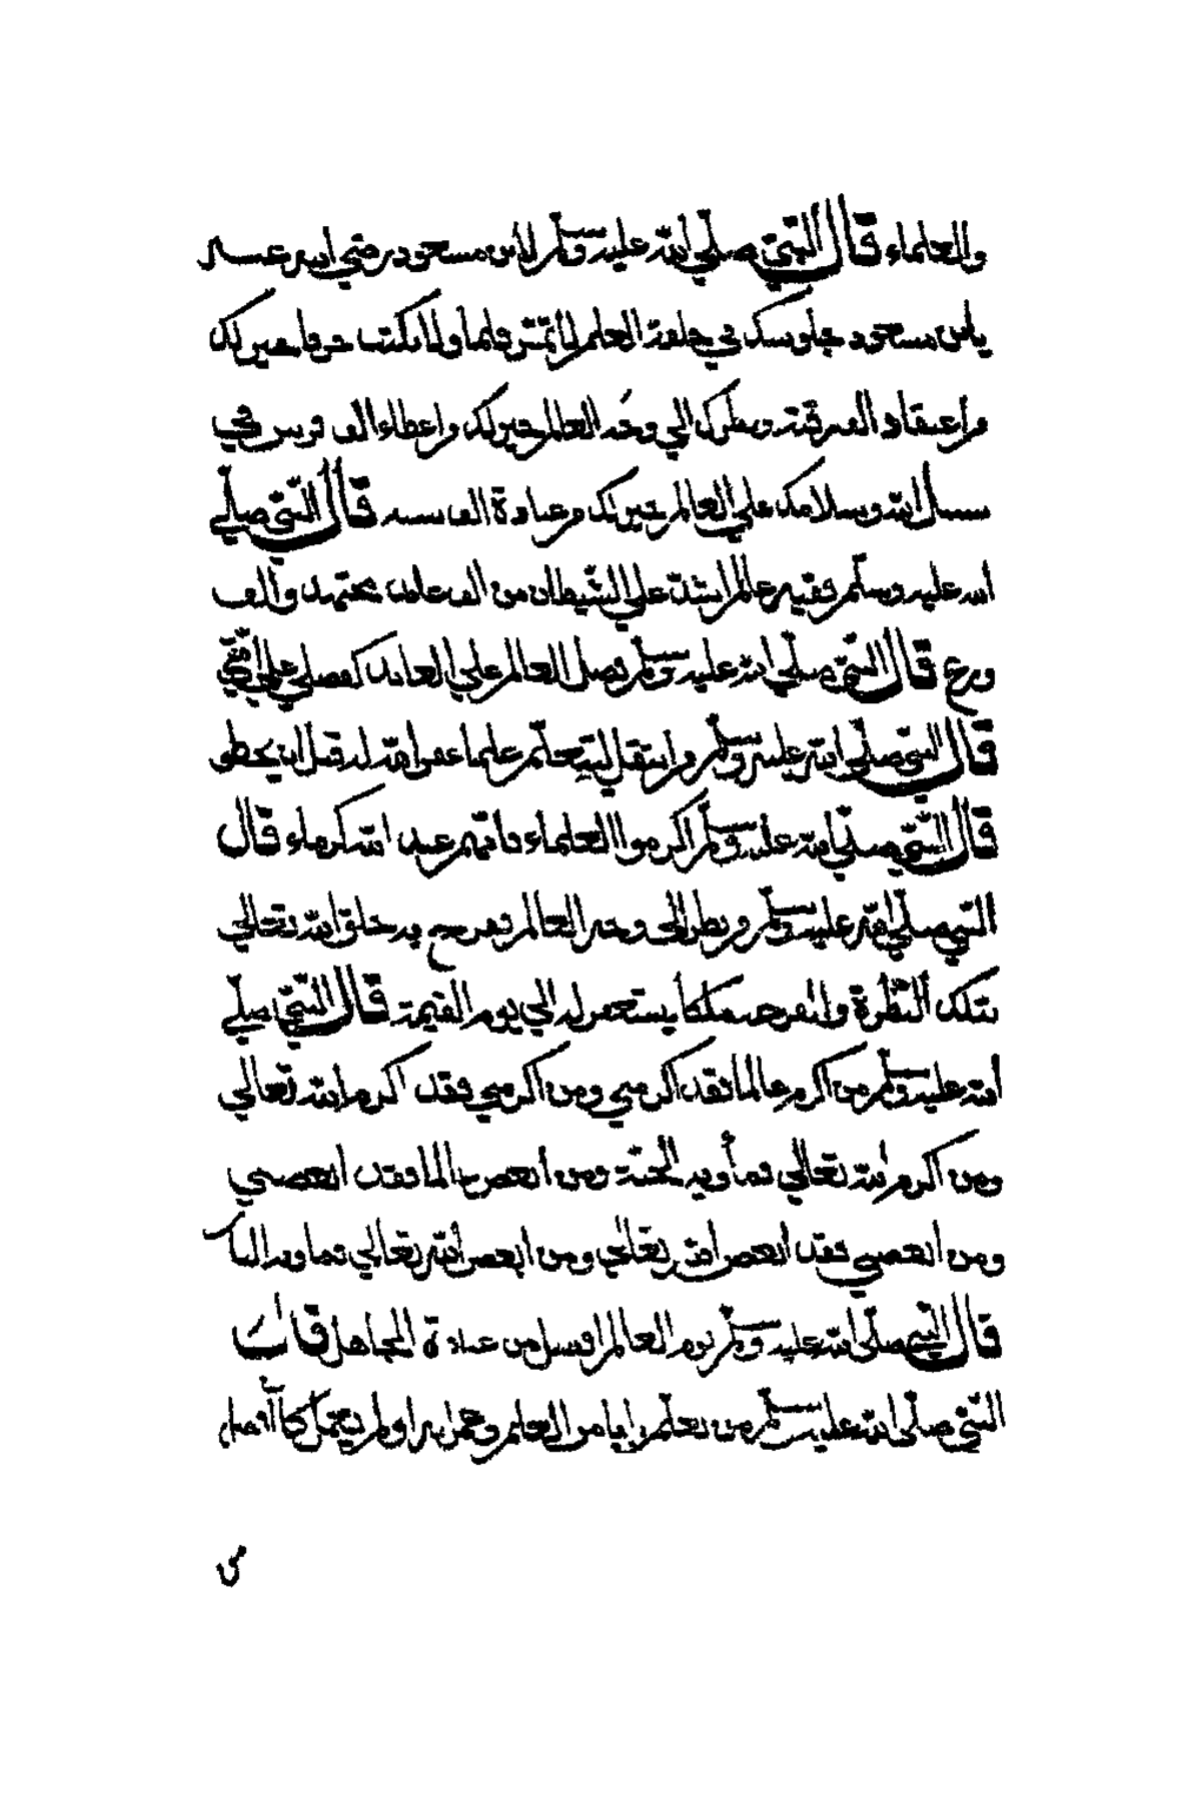 والعلماء قال النبي صلي الله عليه وسلم لابن مسعود رضي الله عنه
يابن مسعود جلوسك في حلقة العلم لا تمس قلما ولا تكتب حرفا خير لك
من أعتقاد الف رقبة ونظرك الي وجه العالم خير لك من اعطاء الف فرس في
سبيل الله وسلامك علي العالم خير لك من عبادة الف سنة قال النبي صلي
الله عليه وسلم فقيه عالم اشد علي الشيطان من الف عابد مجتهد والف
ورع قال النبي صلي الله عليه وسلم فضل العالم علي العابد كفضلي علي أمتي
قال النبي صلي الله عليه وسلم من انتقل ليتعلم علما غفر الله له قبل ان يخطو
قال النبي صلي الله عليه وسلم اكرموا العلماء فانهم عند الله كرماء قال
النبي صلي الله عليه وسلم من نظر الي وجه العالم ففرح به خلق الله تعالي
بتلك النظرة والفرحة ملكا يستغفر له الي يوم القيمة قال النبي صلي
الله عليه وسلم من اكرم عالما فقد اكرمني ومن اكرمني فقد اكرم الله تعالي
ومن اكرم الله تعالي فمأويه الجنة ومن أبغض عالما فقد ابغضني
ومن ابغضني فقد ابغض الله تعالي ومن ابغض الله تعالي فماويه النار
قال النبي صلي الله عليه وسلم نوم العالم افضل من عبادة الجاهل قال
النبي صلي الله عليه وسلم من تعلم بابا من العلم وعمل به اولم يعمل كان أفضل
من